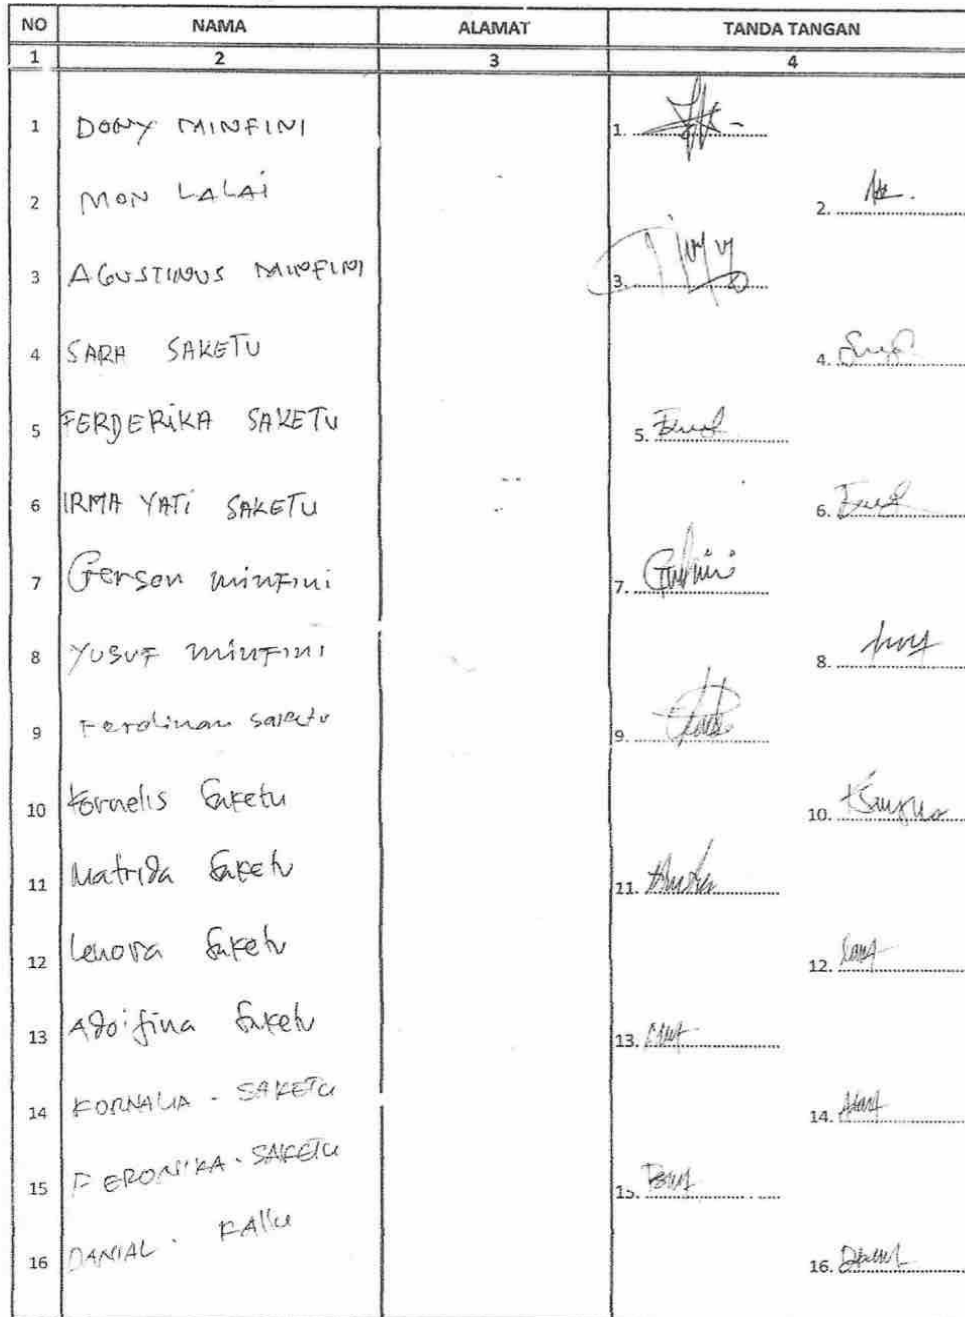 NO NAMA ALAMAT TANDA TANGAN
1 2 3 4
1 DONY MINFINI 1.
2 MON LALAI 2.
3 AGUSTINUS MINFINI 3.
4 SARA SAKETU 4.
5 FERDERIKA SAKETU 5.
6 IRMA YATI SAKETU 6.
7 Gerson minfini 7.
8 YUSUF minfini 8.
9 Ferdinan saketu 9.
10 Kornelis Saketu 10.
11 Matrida Saketu 11.
12 Lenora Saketu 12.
13 Adolfina Saketu 13.
14 KORNALIA - SAKETU 14.
15 FERONIKA - SAKETU 15.
16 DANIAL - 16.